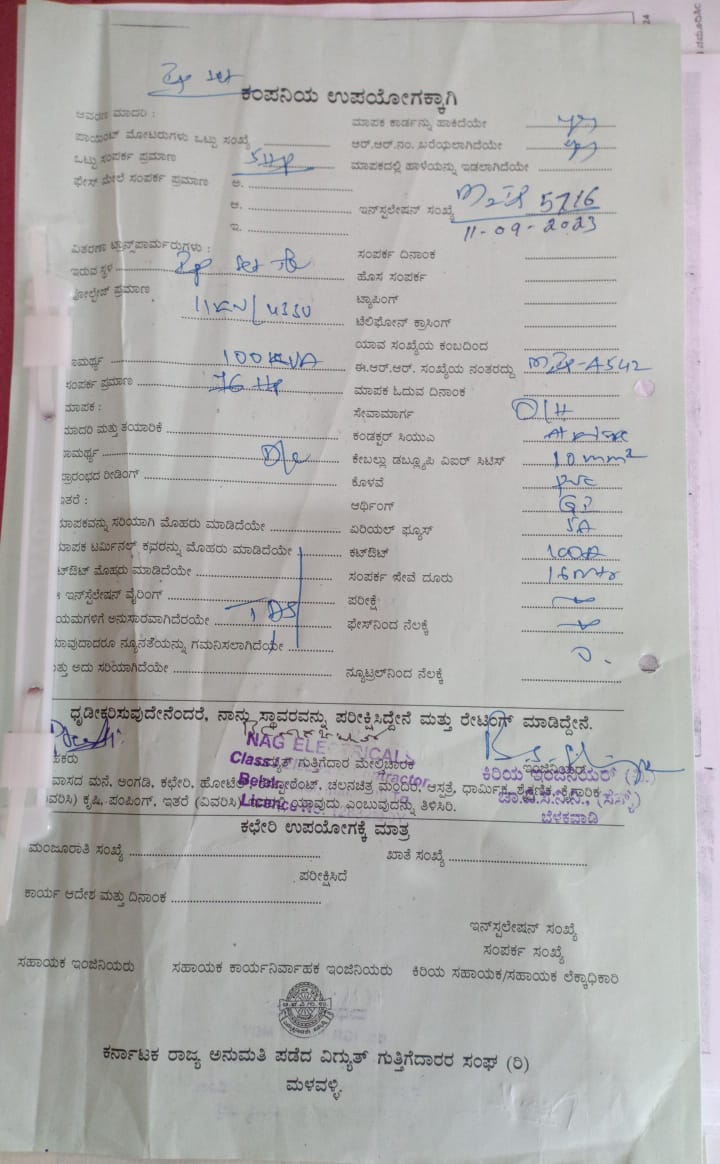 Ip set
ಕಂಪನಿಯ ಉಪಯೋಗಕ್ಕಾಗಿ
ಆವರಣ ಮಾದರಿ :
ಮಾಪಕ ಕಾರ್ಡನ್ನು ಹಾಕಿದೆಯೇ
ಪಾಯಿಂಟ್ ಮೋಟರುಗಳು ಒಟ್ಟು ಸಂಖ್ಯೆ
ಆರ್.ಆರ್.ನಂ. ಬರೆಯಲಾಗಿದೆಯೇ
ಒಟ್ಟು ಸಂಪರ್ಕ ಪ್ರಮಾಣ 5HP
ಮಾಪಕದಲ್ಲಿ ಹಾಳೆಯನ್ನು ಇಡಲಾಗಿದೆಯೇ
ಫೇಸ್ ಮೇಲೆ ಸಂಪರ್ಕ ಪ್ರಮಾಣ ಅ.
ಆ.
ಇನ್‌ಸ್ಟಲೇಷನ್ ಸಂಖ್ಯೆ 5716
ಇ.
11-09-2023
ವಿತರಣಾ ಟ್ರಾನ್ಸ್‌ಫಾರ್ಮರುಗಳು :
ಸಂಪರ್ಕ ದಿನಾಂಕ
ಇರುವ ಸ್ಥಳ Ip set
ಹೊಸ ಸಂಪರ್ಕ
ವೋಲ್ಟೇಜ್ ಪ್ರಮಾಣ
ಟ್ಯಾಪಿಂಗ್
ಟೆಲಿಫೋನ್ ಕ್ರಾಸಿಂಗ್
ಯಾವ ಸಂಖ್ಯೆಯ ಕಂಬದಿಂದ
ಾಮರ್ಥ್ಯ 100 KVA
ಈ.ಆರ್.ಆರ್. ಸಂಖ್ಯೆಯ ನಂತರದ್ದು
ಸಂಪರ್ಕ ಪ್ರಮಾಣ 76 HP
ಮಾಪಕ ಓದುವ ದಿನಾಂಕ
ಮಾಪಕ :
ಸೇವಾಮಾರ್ಗ O/H
ಮಾದರಿ ಮತ್ತು ತಯಾರಿಕೆ
ಕಂಡಕ್ಟರ್ ಸಿಯುಎ
ಾಮರ್ಥ್ಯ
ಕೇಬಲ್ಲು ಡಬ್ಲ್ಯೂಪಿ ವಿಐರ್ ಸಿಟಿಸ್ 10 mm²
ಪ್ರಾರಂಭದ ರೀಡಿಂಗ್
ಕೊಳವೆ PVC
ಇತರೆ :
ಆರ್ಥಿಂಗ್ GI
ಮಾಪಕವನ್ನು ಸರಿಯಾಗಿ ಮೊಹರು ಮಾಡಿದೆಯೇ
ಏರಿಯಲ್ ಫ್ಯೂಸ್ 5A
ಮಾಪಕ ಟರ್ಮಿನಲ್ ಕವರನ್ನು ಮೊಹರು ಮಾಡಿದೆಯೇ
ಕಟ್‌ಔಟ್ 100A
ಟ್‌ಔಟ್ ಮೊಹರು ಮಾಡಿದೆಯೇ
ಸಂಪರ್ಕ ಸೇವೆ ದೂರು
ಇನ್‌ಸ್ಟಲೇಷನ್ ವೈರಿಂಗ್
ಪರೀಕ್ಷೆ
ಯಮಗಳಿಗೆ ಅನುಸಾರವಾಗಿದೆರಯೇ
ಫೇಸ್‌ನಿಂದ ನೆಲಕ್ಕೆ
ಯಾವುದಾದರೂ ನ್ಯೂನತೆಯನ್ನು ಗಮನಿಸಲಾಗಿದೆಯೇ
ತ್ತು ಅದು ಸರಿಯಾಗಿದೆಯೇ
ನ್ಯೂಟ್ರಲ್‌ನಿಂದ ನೆಲಕ್ಕೆ
ಧೃಡೀಕರಿಸುವುದೇನೆಂದರೆ, ನಾನು ಸ್ಥಾವರವನ್ನು ಪರೀಕ್ಷಿಸಿದ್ದೇನೆ ಮತ್ತು ರೇಟಿಂಗ್ ಮಾಡಿದ್ದೇನೆ.
NAG ELECTRICALS
ಕರು
ವಿದ್ಯುತ್ ಗುತ್ತಿಗೆದಾರ ಮೇಲ್ವಿಚಾರಕ
ಇಂಜಿನಿಯರ್
ಕಿರಿಯ ಇಂಜಿನಿಯರ್
ವಾಸದ ಮನೆ, ಅಂಗಡಿ, ಕಛೇರಿ, ಹೋಟೆಲ್ ಚಲನಚಿತ್ರ ಮಂದಿರ, ಆಸ್ಪತ್ರೆ, ಧಾರ್ಮಿಕ, ಶೈಕ್ಷಣಿಕ, ಕೈಗಾರಿಕ
ವರಿಸಿ) ಕೃಷಿ, ಪಂಪಿಂಗ್, ಇತರೆ (ವಿವರಿಸಿ) ಯಾವುದು ಎಂಬುವುದನ್ನು ತಿಳಿಸಿರಿ.
ಬೆಳಕವಾಡಿ
ಕಛೇರಿ ಉಪಯೋಗಕ್ಕೆ ಮಾತ್ರ
ಮಂಜೂರಾತಿ ಸಂಖ್ಯೆ
ಖಾತೆ ಸಂಖ್ಯೆ
ಪರೀಕ್ಷಿಸಿದೆ
ಕಾರ್ಯ ಆದೇಶ ಮತ್ತು ದಿನಾಂಕ
ಇನ್‌ಸ್ಪಲೇಷನ್ ಸಂಖ್ಯೆ
ಸಂಪರ್ಕ ಸಂಖ್ಯೆ
ಸಹಾಯಕ ಇಂಜಿನಿಯರು ಸಹಾಯಕ ಕಾರ್ಯನಿರ್ವಾಹಕ ಇಂಜಿನಿಯರು ಕಿರಿಯ ಸಹಾಯಕ/ಸಹಾಯಕ ಲೆಕ್ಕಾಧಿಕಾರಿ
ಕರ್ನಾಟಕ ರಾಜ್ಯ ಅನುಮತಿ ಪಡೆದ ವಿಗ್ಯುತ್ ಗುತ್ತಿಗೆದಾರರ ಸಂಘ (ರಿ)
ಮಳವಳ್ಳಿ.